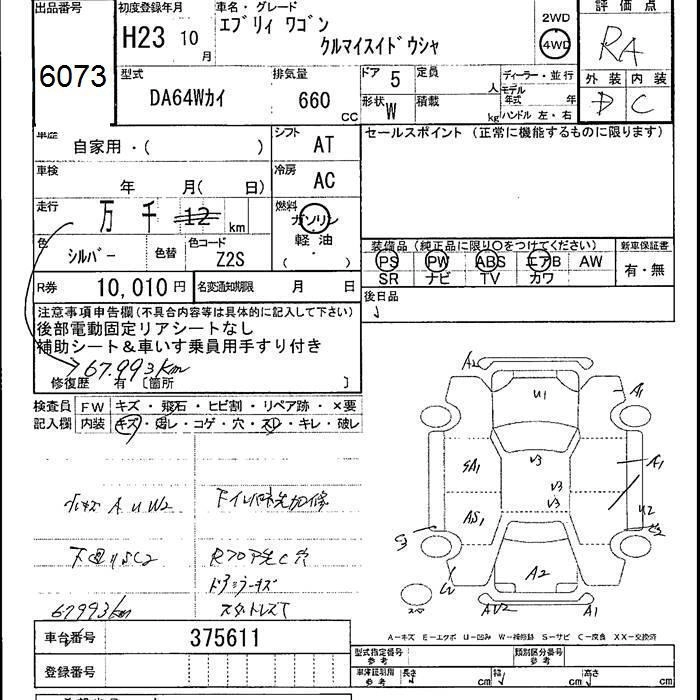 出品番号
6073
初度登録年月
H23 10月
車名・グレード
エブリィ ワゴン
クルマイスイドウシャ
2WD
4WD
評価点
RA
外装 内装
D C
型式
DA64Wカイ
排気量
660 CC
ドア 5
定員 人
形状 W
積載 kg
ディーラー・並行
モデル年式 年
ハンドル 左・右
車歴
自家用・( )
シフト
AT
セールスポイント (正常に機能するものに限ります)
車検
年 月( 日)
冷房
AC
走行
万 千 12 km
燃料
ガソリン
軽油
( ・ )
色
シルバー
色替
色コード
Z2S
装備品 (純正品に限り○をつけてください)
PS PW ABS エアB AW
SR ナビ TV カワ
新車保証書
有・無
R券 10,010円
名変通知期限 月 日
後日品
注意事項申告欄(不具合内容等は具体的に記入して下さい)
後部電動固定リアシートなし
補助シート&車いす乗員用手すり付き
67.993km
修復歴 有 〔箇所 〕
検査員
記入欄
FW キズ・飛石・ヒビ割・リペア跡・×要
内装 キズ・汚レ・コゲ・穴・スレ・キレ・破レ
小キズ A U W2
下回りSC2
67993km
A2
U1
A1
V3
SA1
A1
V3
V3
AS1
U2
A2
W
AU2
A1
A-キズ E-エクボ U-凹み W-補修跡 S-サビ C-腐食 XX-交換済
車台番号
375611
登録番号
型式指定番号
参考
類別区分番号
参考
車庫証明用
参考
長さ cm 幅 cm 高さ cm